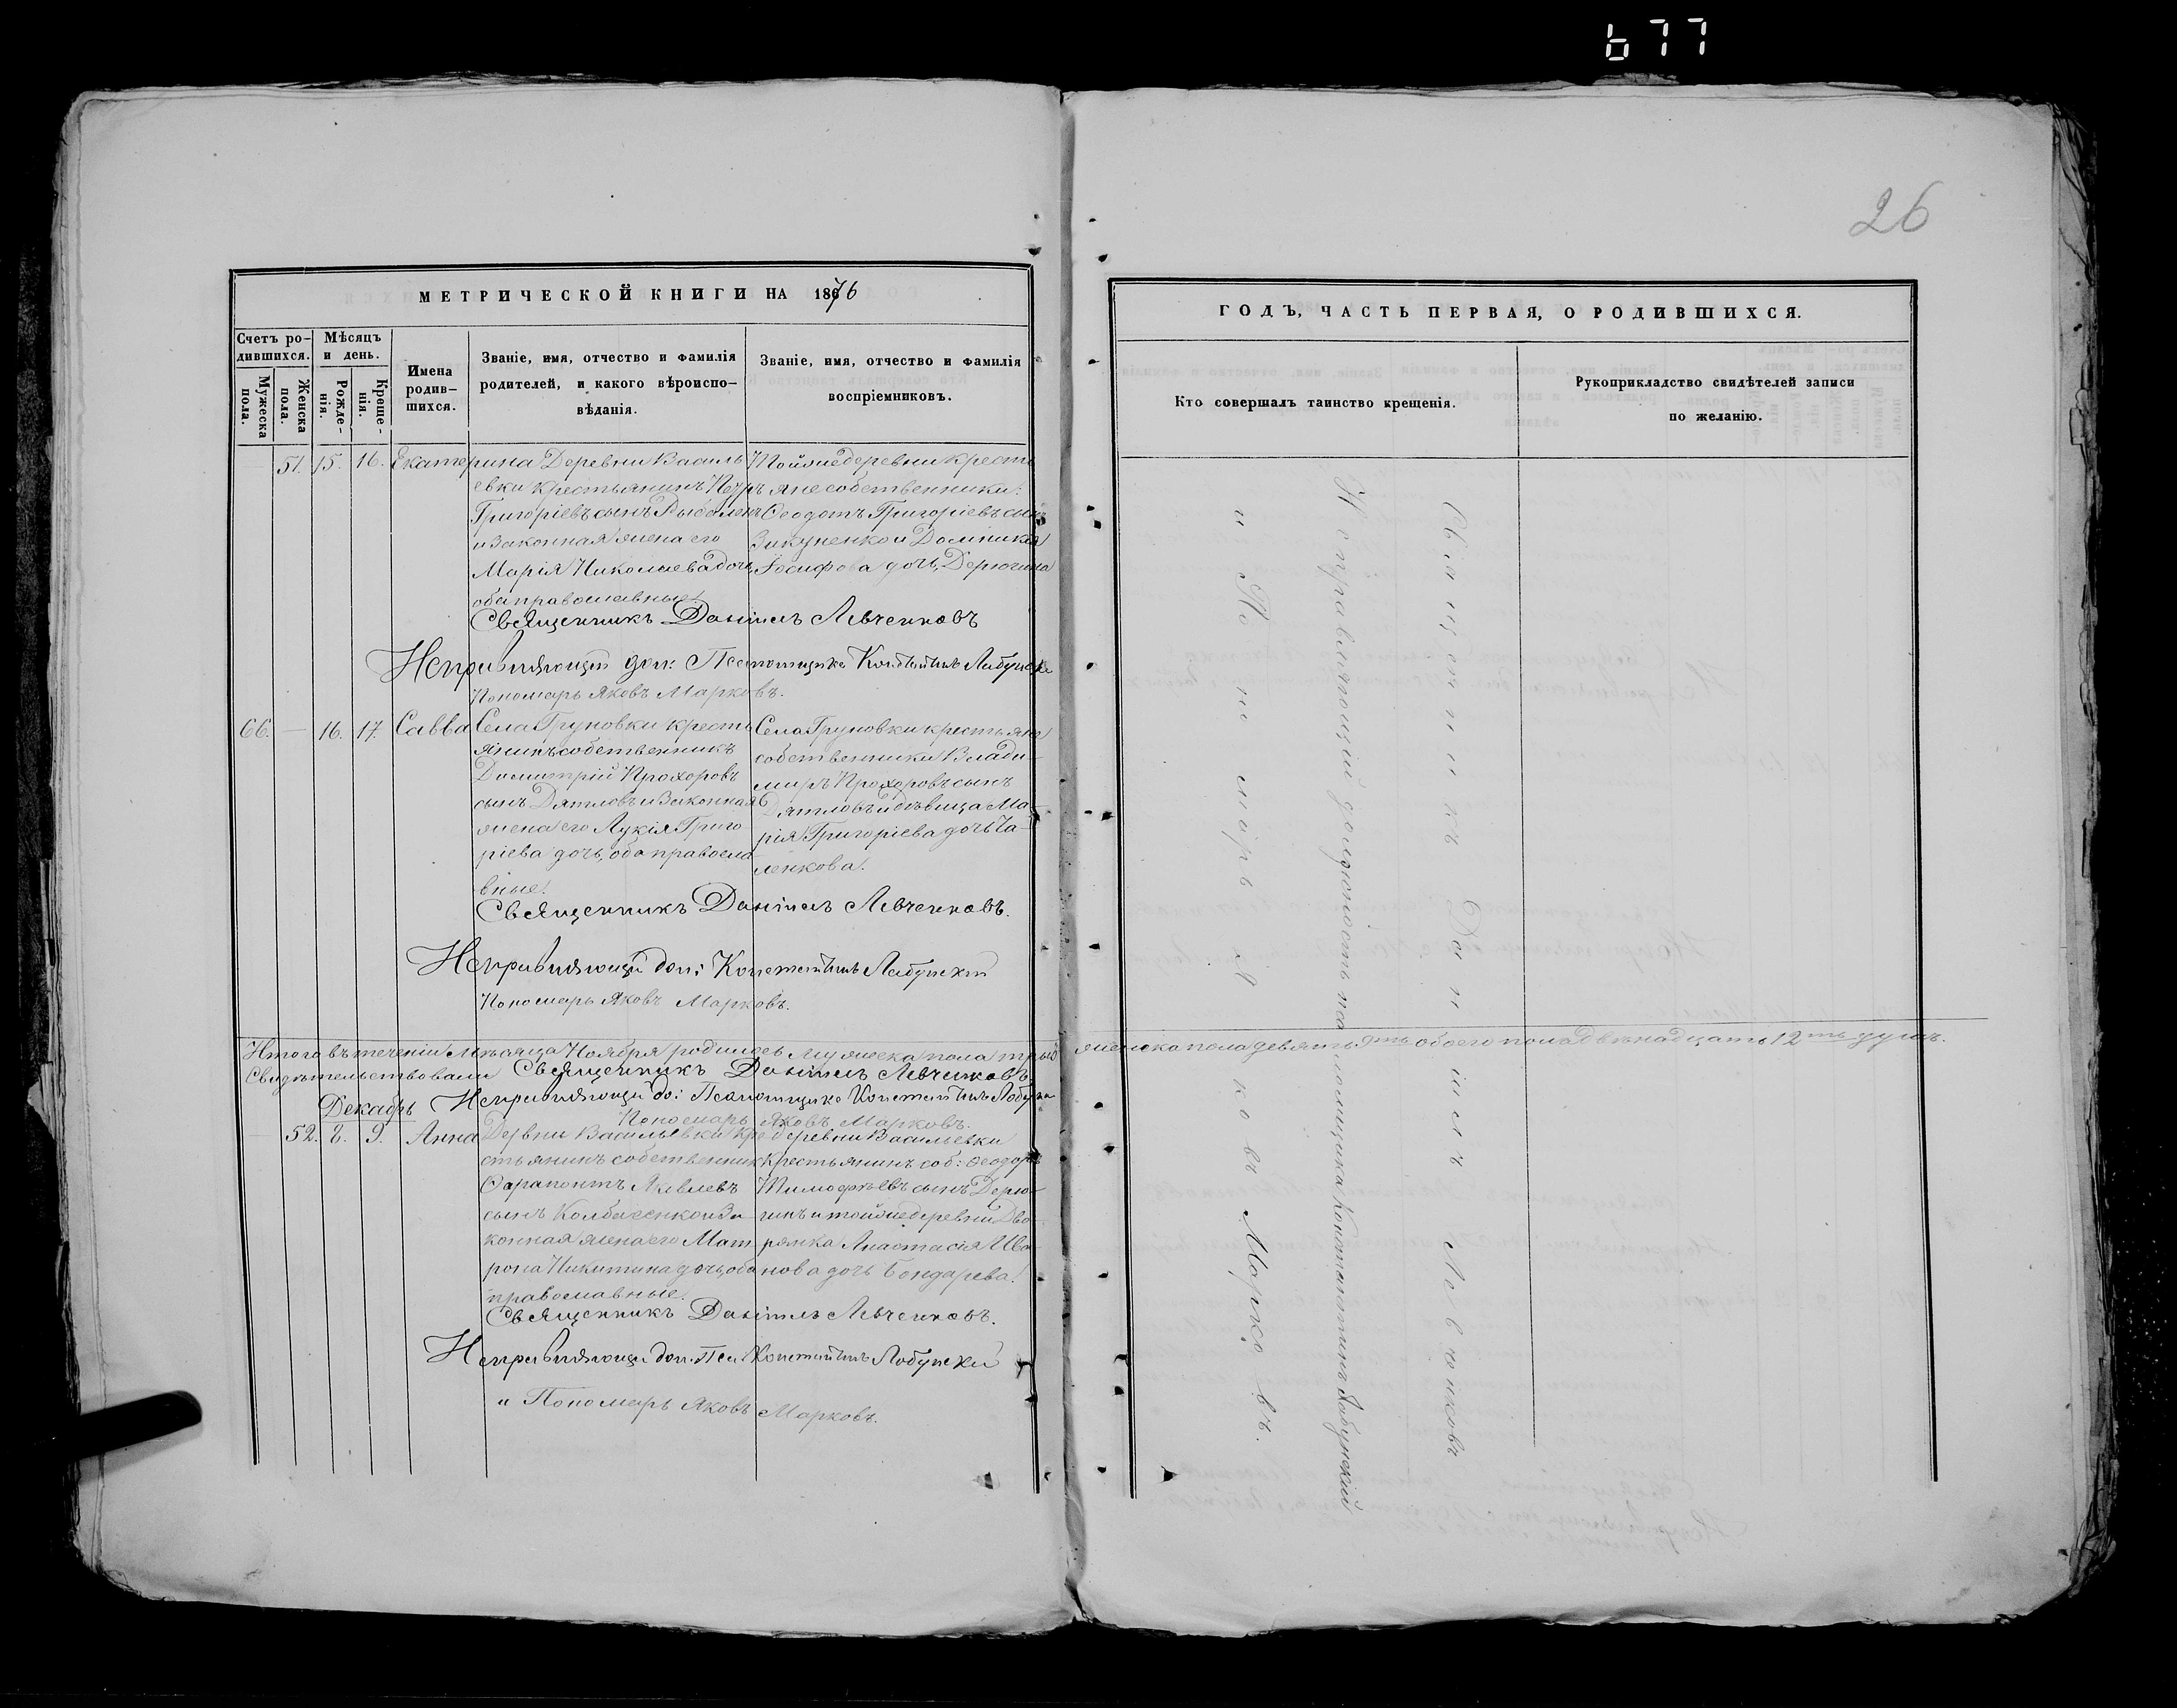 677
26
МЕТРИЧЕСКОЙ КНИГИ НА 1876
Счетъ ро-
дившихся.
Мужеска
пола.
Женска
пола.
Мѣсяцъ
и день.
Рожде-
нія.
Креще-
нія.
Имена
родив-
шихся.
Званіе, имя, отчество и фамилія
родителей, и какого вѣроиспо-
вѣданія.
Званіе, имя, отчество и фамилія
воспріемниковъ.
51. 15. 16. Екатерина
Деревни Василь
евки крестьянинъ Петръ
Григоріевъ сынъ
и законная жена его
Марія Николаева дочь,
оба православные.
Тойже деревни кресть
яне собственники:
Ѳеодотъ Григоріевъ сынъ
Зикуненко и Домникія
Іосифова дочь, Дерюгина
Священникъ Даніилъ Левченковъ
Исправляющій дол: Псаломщика Констатинъ Лабунскій
Пономарь Яковъ Марковъ.
66. — 16. 17. Савва
Села Груновки кресть
янинъ собственникъ
Димитрій Прохоровъ
сынъ Дятловъ и законная
жена его Лукія Григо
ріева дочь, оба правосла
вные.
Села Груновки крестьяне
собственники Влади-
миръ Прохоровъ сынъ
Дятловъ и дѣвица Ма-
рія Григоріева дочь Ча-
ленкова.
Священникъ Даніилъ Левченковъ.
Исправляющій дол: Констатинъ Лабунскій
Пономарь Яковъ Марковъ.
Итого въ теченіи мѣсяца Ноября родилось мужеска пола три женска пола девять 9ть обоего пола двѣнадцать 12ть душъ.
Свидѣтельствовали Священникъ Даніилъ Левченковъ
Исправляющій дол: Псаломщика Констатинъ Лабунскій
Пономарь Яковъ Марковъ.
Декабрь
52. 8. 9. Анна
Деревни Васильевки кре
стьянинъ собственникъ
Ѳарапонтъ Яковлевъ
сынъ и за
конная жена его Мат
рона Никитина дочь, оба
православные.
деревни Васильевки
крестьянинъ соб: Ѳеодоръ
Тимофѣевъ сынъ Дерю-
гинъ и тойже деревни Дво-
рянка Анастасія Ива-
нова дочь Бондарева.
Священникъ Даніилъ Левченковъ.
Исправляющій дол. Пса: Констатинъ Лабунскій
и Пономарь Яковъ Марковъ.
ГОДЪ, ЧАСТЬ ПЕРВАЯ, О РОДИВШИХСЯ.
Кто совершалъ таинство крещенія.
Рукоприкладство свидѣтелей записи
по желанію.
Священникъ Даніилъ Левченковъ
Исправляющій должность псаломщика Константинъ Лабунскій
и Пономарь Яковъ Марковъ.